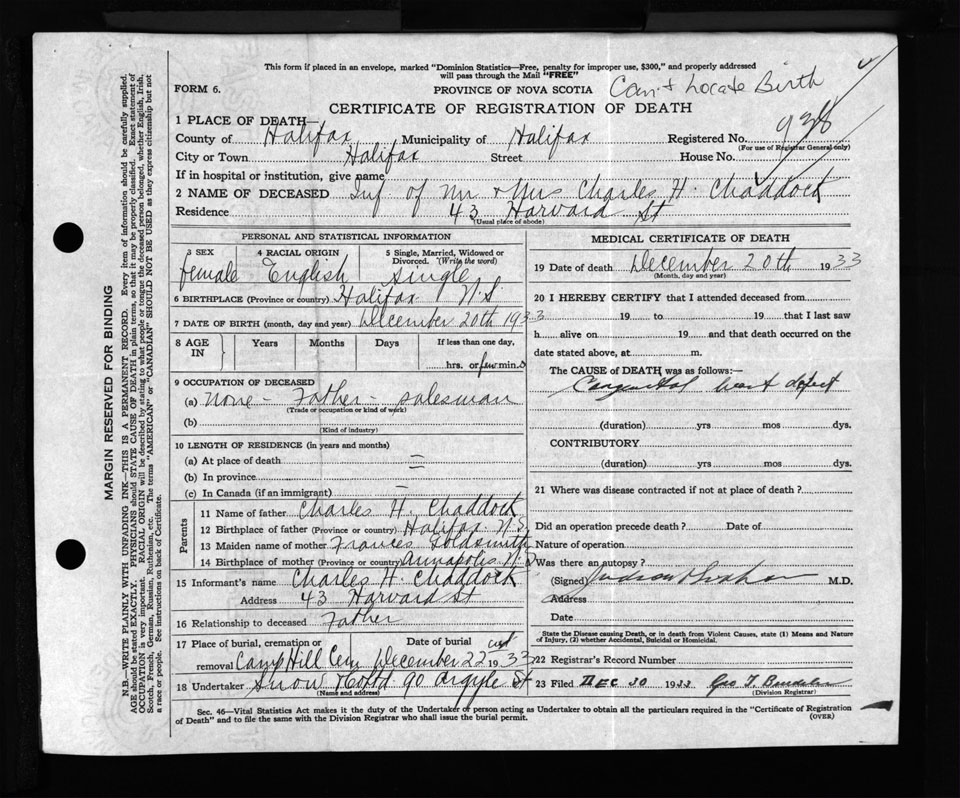 This form if placed in an envelope, marked "Dominion Statistics—Free, penalty for improper use, $300," and properly addressed
will pass through the Mail "FREE"
FORM 6.
PROVINCE OF NOVA SCOTIA
Can't Locate Birth
CERTIFICATE OF REGISTRATION OF DEATH
1 PLACE OF DEATH—
County of Halifax Municipality of Halifax Registered No. 938
(For use of Registrar General only)
City or Town Halifax Street House No.
If in hospital or institution, give name
2 NAME OF DECEASED Inf of Mr & Mrs Charles H. Chaddock
Residence 43 Harvard St
(Usual place of abode)
PERSONAL AND STATISTICAL INFORMATION
3 SEX 4 RACIAL ORIGIN 5 Single, Married, Widowed or
Divorced. (Write the word)
female English Single
6 BIRTHPLACE (Province or country) Halifax N.S
7 DATE OF BIRTH (month, day and year) December 20th 1933
8 AGE IN Years Months Days If less than one day,
hrs. or few mins
9 OCCUPATION OF DECEASED
(a) None - Father - salesman
(Trade or occupation or kind of work)
(b)
(Kind of industry)
10 LENGTH OF RESIDENCE (in years and months)
(a) At place of death
(b) In province
(c) In Canada (if an immigrant)
Parents
11 Name of father Charles H. Chaddock
12 Birthplace of father (Province or country) Halifax N.S.
13 Maiden name of mother Frances Goldsmith
14 Birthplace of mother (Province or country) Annapolis N.S
15 Informant's name Charles H. Chaddock
Address 43 Harvard St
16 Relationship to deceased Father
17 Place of burial, cremation or Date of burial
removal Camp Hill Cem December 22 1933
18 Undertaker Snow 90 Argyle St
(Name and address)
MEDICAL CERTIFICATE OF DEATH
19 Date of death December 20th 1933
(Month, day and year)
20 I HEREBY CERTIFY that I attended deceased from
19 to 19 that I last saw
h alive on 19 and that death occurred on the
date stated above, at m.
The CAUSE of DEATH was as follows:—
Congenital heart defect
(duration) yrs mos dys.
CONTRIBUTORY
(duration) yrs. mos. dys.
21 Where was disease contracted if not at place of death?
Did an operation precede death? Date of
Nature of operation
Was there an autopsy?
(Signed) M.D.
Address
Date
State the Disease causing Death, or in death from Violent Causes, state (1) Means and Nature
of Injury, (2) whether Accidental, Suicidal or Homicidal.
22 Registrar's Record Number
23 Filed DEC 30 1933 Geo T.
(Division Registrar)
Sec. 46—Vital Statistics Act makes it the duty of the Undertaker or person acting as Undertaker to obtain all the particulars required in the "Certificate of Registration
of Death" and to file the same with the Division Registrar who shall issue the burial permit.
(OVER)
MARGIN RESERVED FOR BINDING
N.B.—WRITE PLAINLY WITH UNFADING INK—THIS IS A PERMANENT RECORD. Every item of information should be carefully supplied.
AGE should be stated EXACTLY. PHYSICIANS should STATE CAUSE OF DEATH in plain terms, so that it may be properly classified. Exact statement of
OCCUPATION is very important. RACIAL ORIGIN will be described by stating to what people or tongue the deceased person belonged, whether English, Irish,
Scotch, French, German, Russian, Ruthenian, etc. The terms "AMERICAN" or "CANADIAN" SHOULD NOT BE USED as they express citizenship but not
a race or people. See instructions on back of Certificate.